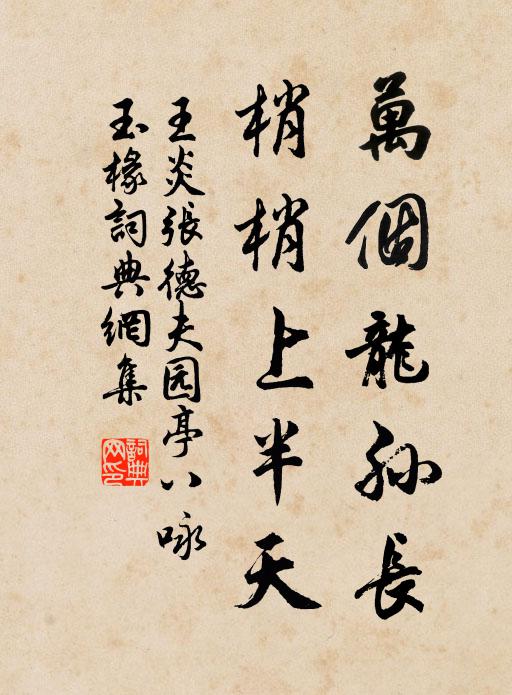 萬個龍孫長
梢梢上半天
王炎張德夫园亭八咏
玉橡詞典網集
詞典网印